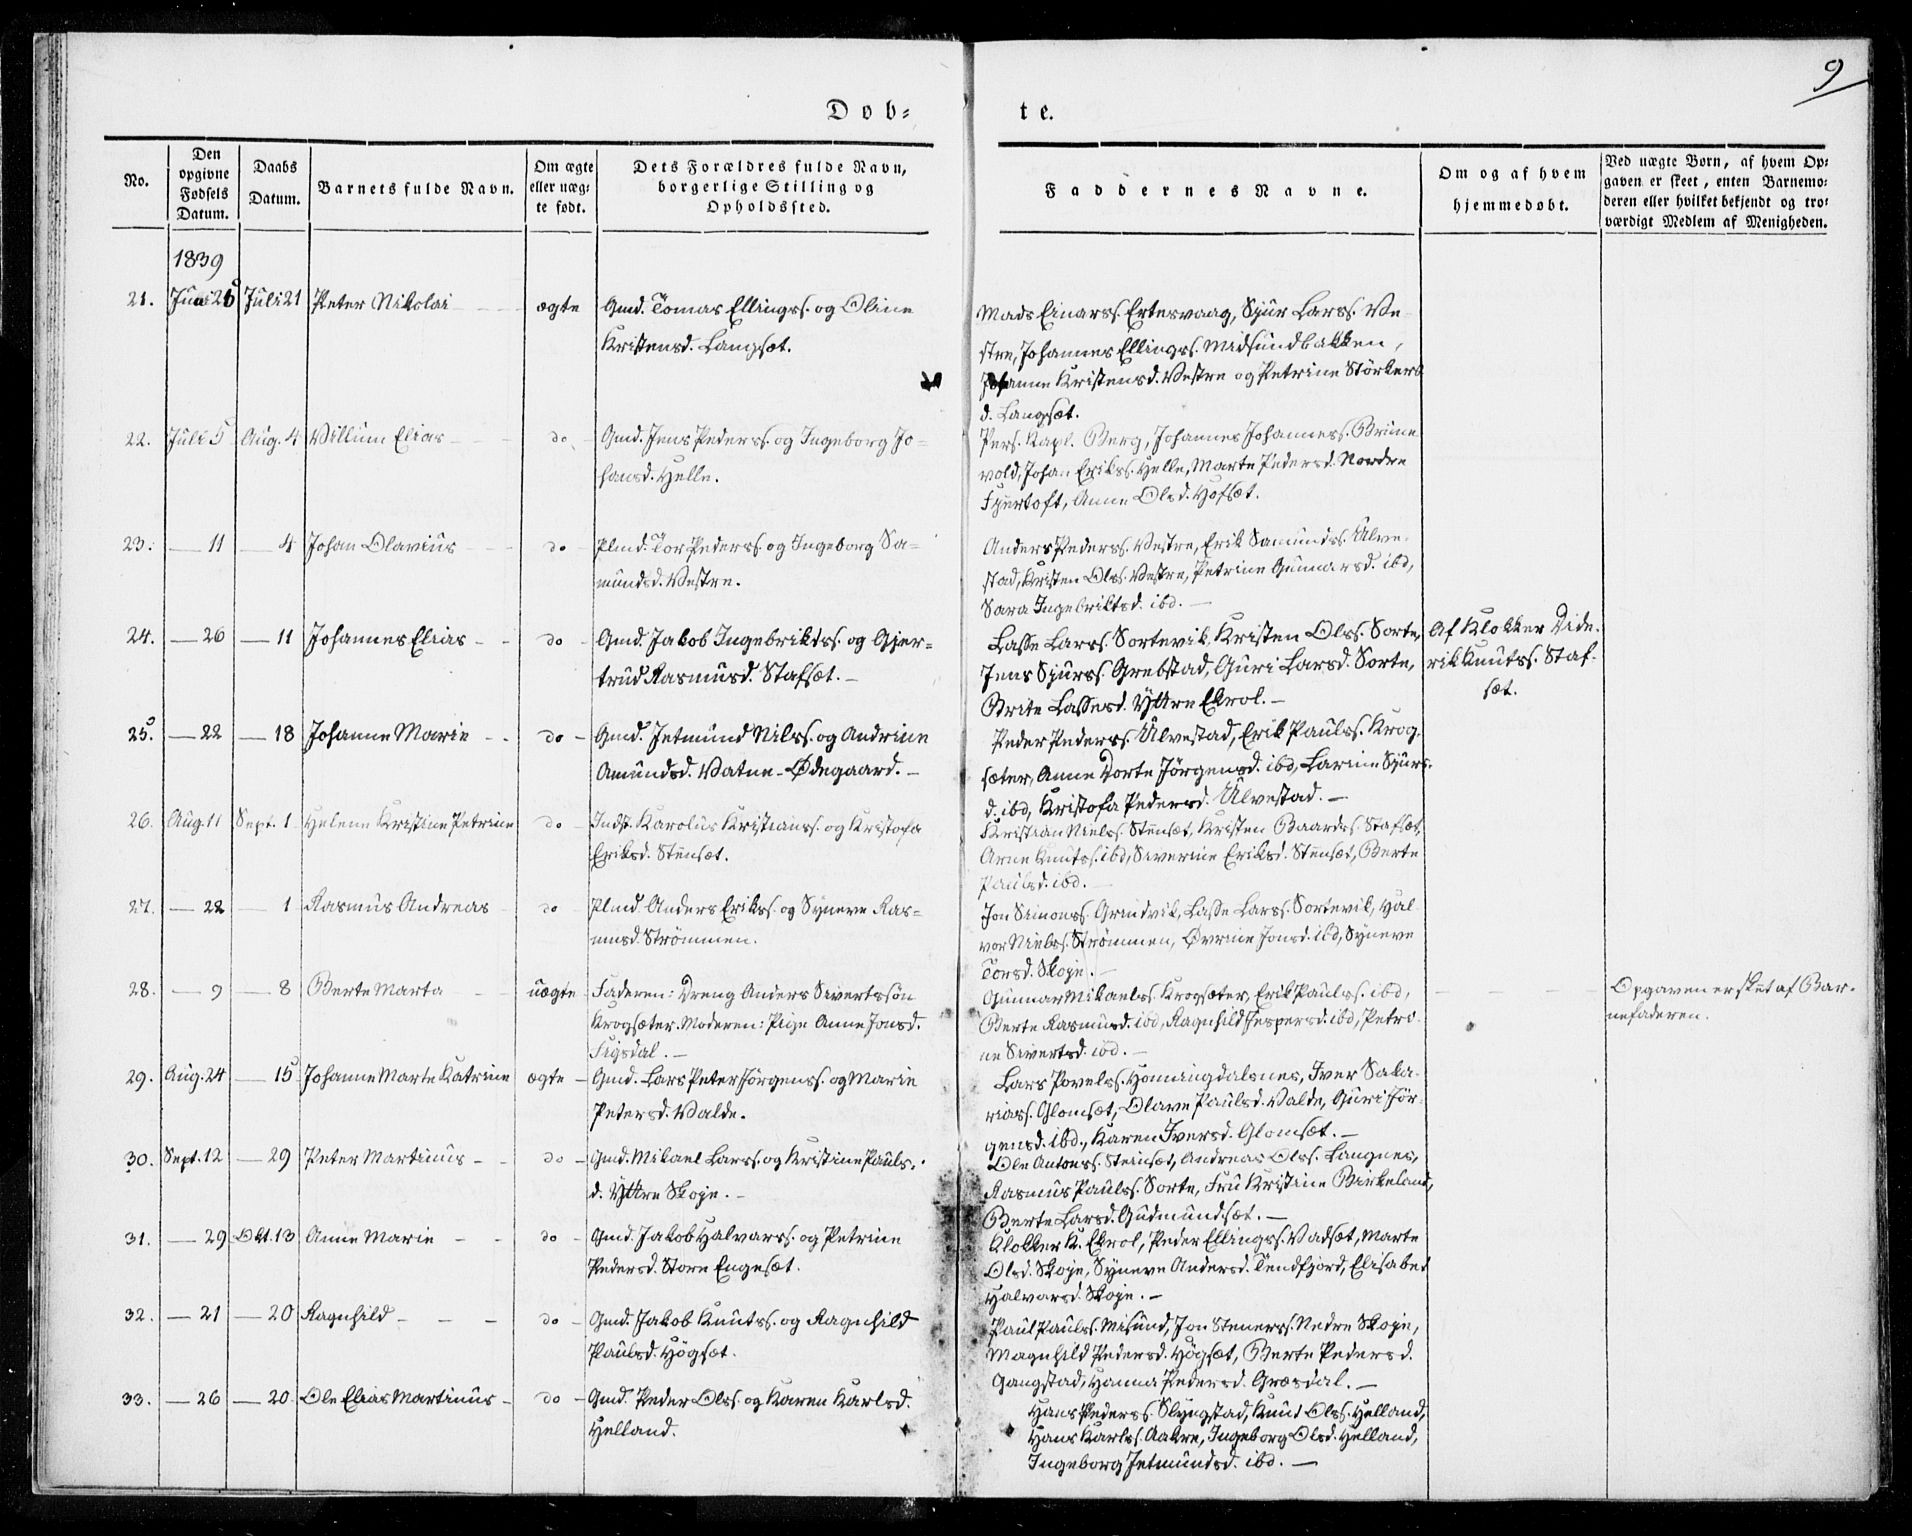 9
Døb-te.
No.
Den opgivne Fødsels Datum.
Daabs Datum.
Barnets fulde Navn.
Om ægte eller uægte født.
Dets Forældres fulde Navn, borgerlige Stilling og Opholdssted.
Faddernes Navne.
Om og af hvem hjemmedøbt.
Ved uægte Born, af hvem Opgaven er skeet, enten Barnemoderen eller hvilket bekjendt og troværdigt Medlem af Menigheden.
1839
21. Juli 21 Peter Nikolai ægte Gmd. Tomas Ellingss. og Oline
Kristensd. Langsæt.
Mads Einarss. Ertesvaag, Sjur Larss. Ve-
stre, Johannes Ellingss. Midsundbakken,
Johanne Kristensd. Vestre og Petrine Störkers
d. Langsæt.
22. Juli 5 Aug. 4 Villum Elias do Gmd. Jens Pederss. og Ingeborg Jo-
hansd. Helle.
Pers. Kapl. Berg, Johannes Johanness. Brune
vold, Johan Erikss. Helle, Marte Pedersd. Nordre
Fjørtoft, Anne Olsd. Hofsæt.
23. — 11 — 4 Johan Olavius do Plmd. Tor Pederss. og Ingeborg Sa-
mundsd. Vestre.
Anders Pederss. Vestre, Erik Samundss. Ulve-
stad, Kristen Olss. Vestre, Petrine Gunnarsd. ibd,
Sara Ingebriktsd. ibd. —
24. — 26 — 11 Johannes Elias do Gmd. Jakob Ingebriktss. og Gjer-
trud Rasmusd. Stafsæt. —
Lasse Larss. Sortevik, Kristen Olss. Sorte,
Jens Sjurss. Grebstad, Guri Larsd. Sorte,
Brite Lassesd. Yttre Ekrol. —
Af Klokker Dide-
rik Knutss. Staf-
sæt.
25. — 22 — 18 Johanne Marie do Gmd. Jetmund Nilss. og Andrine
Amundsd. Vatne-Ødegaard. —
Peder Pederss. Ulvestad, Erik Paulss. Krog-
sæter, Anne Dorte Jörgensd. ibd, Larine Sjurs-
d. ibd, Kristofa Pedersd. Ulvestad. —
26. Aug. 11 Sept. 1 Helene Kristine Petrine do Indst. Karolus Kristianss. og Kristofa
Eriksd. Stensæt.
Kristian Nielss. Stensæt, Kristen Baardss. Stafsæt,
Arne Knutss. ibd, Siverine Eriksd. Stensæt, Berte
Paulsd. ibd.
27. — 22 — 1 Rasmus Andreas do Plmd. Anders Erikss. og Syneve Ras-
musd. Strömmen.
Jon Simonss. Grindvik, Lasse Larss. Sortevik, Hal-
vor Nielss. Strömmen, Øverine Jonsd. ibd, Syneve
Torsd. Skoje. —
28. — 9 — 8 Berte Marta uægte Faderen: Dreng Anders Sivertssön
Krogsæter. Moderen: Pige Anne Jonsd.
Figsdal. —
Gunnar Mikaelss. Krogsæter, Erik Paulss. ibd,
Berte Rasmusd. ibd, Ragnhild Jespersd. ibd, Petri-
ne Sivertsd. ibd. —
Opgaven er skeet af Bar-
nefaderen.
29. Aug. 24 — 15 Johanne Marte Katrine ægte Gmd. Lars Peter Jörgenss. og Marie
Petersd. Valde.
Lars Povelss. Honningdalsnes, Iver Saka-
riass. Glomsæt, Olave Paulsd. Valde, Guri Jör-
gensd. ibd., Karen Iversd. Glomsæt. —
30. Sept. 12 — 29 Peter Martinus do Gmd. Mikael Larss. og Kristine Pauls-
d. Yttre Skoje. —
Ole Antonss. Steinsæt, Andreas Olss. Langnes,
Rasmus Paulss. Sorte, Fru Kristine Birkeland,
Berte Larsd. Gudmundsæt. —
31. — 29 Okt. 13 Anne Marie do Gmd. Jakob Halvarss. og Petrine
Pedersd. Store Engesæt.
Klokker K. Ekrol, Peder Ellingss. Vadsæt, Marte
Olsd. Skoje, Syneve Andersd. Tendfjord, Elisabet
Halvarsd. Skoje. —
32. — 21 — 20 Ragnhild do Gmd. Jakob Knutss. og Ragnhild
Paulsd. Högsæt.
Paul Paulss. Misund, Jon Stenerss. Nedre Skoje,
Magnhild Pedersd. Högsæt, Berte Pedersd.
Gangstad, Hanna Pedersd. Græsdal. —
33. — 26 — 20 Ole Elias Martinus do Gmd. Peder Olss. og Karen Karlsd.
Helland.
Hans Pederss. Slyngstad, Knud Olss. Helland,
Hans Karlss. Aakre, Ingeborg Olsd. Helland,
Ingeborg Jetmundsd. ibd. —